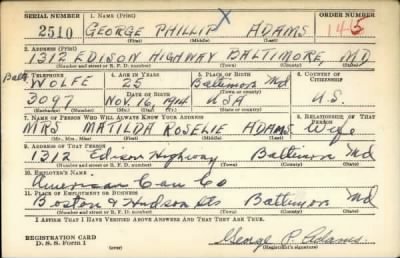 SERIAL NUMBER 1. NAME (Print) ORDER NUMBER
2510 GEORGE PHILLIP X ADAMS 145
(First) (Middle) (Last)
2. ADDRESS (Print)
1312 EDISON HIGHWAY BALTIMORE, MD
(Number and street or R. F. D. number) (Town) (County) (State)
3. TELEPHONE 4. AGE IN YEARS 5. PLACE OF BIRTH 6. COUNTRY OF CITIZENSHIP
Balto. WOLFE 25 Baltimore Md
(Town or county)
DATE OF BIRTH
3097 NOV. 16, 1914 USA U.S.
(Exchange) (Number) (Mo.) (Day) (Yr.) (State or country)
7. NAME OF PERSON WHO WILL ALWAYS KNOW YOUR ADDRESS 8. RELATIONSHIP OF THAT PERSON
MRS MATILDA ROSELIE ADAMS Wife
(Mr., Mrs., Miss) (First) (Middle) (Last)
9. ADDRESS OF THAT PERSON
1312 Edison Highway Baltimore Md
(Number and street or R. F. D. number) (Town) (County) (State)
10. EMPLOYER'S NAME
American Can Co
11. PLACE OF EMPLOYMENT OR BUSINESS
Boston & Hudson Sts Baltimore Md
(Number and street or R. F. D. number) (Town) (County) (State)
I AFFIRM THAT I HAVE VERIFIED ABOVE ANSWERS AND THAT THEY ARE TRUE.
REGISTRATION CARD
D. S. S. Form 1 George P. Adams
(Registrant's signature)